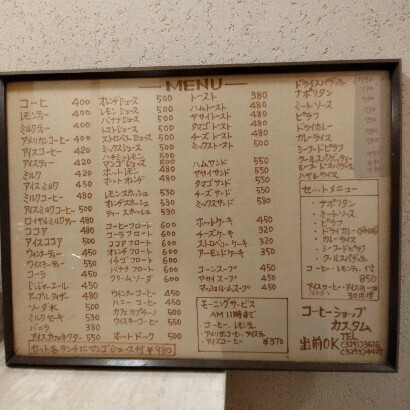 MENU
コーヒ 400
レモンティー 400
ミルクティー 400
アメリカンコーヒー 400
アイスコーヒー 420
アイスティー 420
ミルク 420
アイスミルク 450
アイスミルクコーヒー 500
ロイヤルミルクティ 480
ココア 480
アイスココア 500
ウィンナーティー 450
ウイスキーティー 550
コーラ 450
ジンジャーエール 430
ソーダ水 500
ミルクセーキ 500
バニラ 380
アイスカフェオーレ 550
オレンヂジュース 500
レモンジュース 500
バナナジュース 500
トマトジュース 500
ストロベリージュース 500
ミックスジュース 500
ハネミツレモン 500
マンゴジュース 500
ホットレモン 480
ホットオレンヂ 480
レモンスカッシュ 530
オレンヂスカッシュ 530
ティースカッシュ 530
コーヒーフロート 600
コーラフロート 600
ココアフロート 600
オレンヂフロート 600
イチゴフロート 600
バナナフロート 600
クリームソーダ 600
ウインナーコーヒー 450
ハニーコーヒー 450
カフェカプチーノ 500
ウイスキーコーヒー 550
ホットドック 500
トースト 380
ハムトースト 480
ヤサイトースト 480
タマゴトースト 480
チーズトースト 480
ミックストースト 500
ハムサンド 550
ヤサイサンド 550
タマゴサンド 550
チーズサンド 550
ミックスサンド 580
ホットケーキ 450
チーズケーキ 320
ストロベリーケーキ 320
アーモンドケーキ 350
コーンスープ 450
ヤサイスープ 450
マッシュルームスープ 450
モーニングサービス
AM 11時まで
コーヒー、レモンティ、
アメリカンコーヒー、アイスティ
アイスコーヒー ¥370
ナポリタン
ミートソース
ピラフ
ドライカレー
カレーライス
シーフードピラフ
クールスパゲティー
ハヤシライス
セットメニュー
・ナポリタン
・ミートソース
・ピラフ
・ドライカレー
・カレーライス
・シーフードピラフ
・クールスパゲティ
コーヒー・レモンティ付
850
アイスコーヒー・アイスティー
30円増
コーヒーショップ
カスタム
出前OK TEL
セット各ランチにマンゴジュース付 ¥980